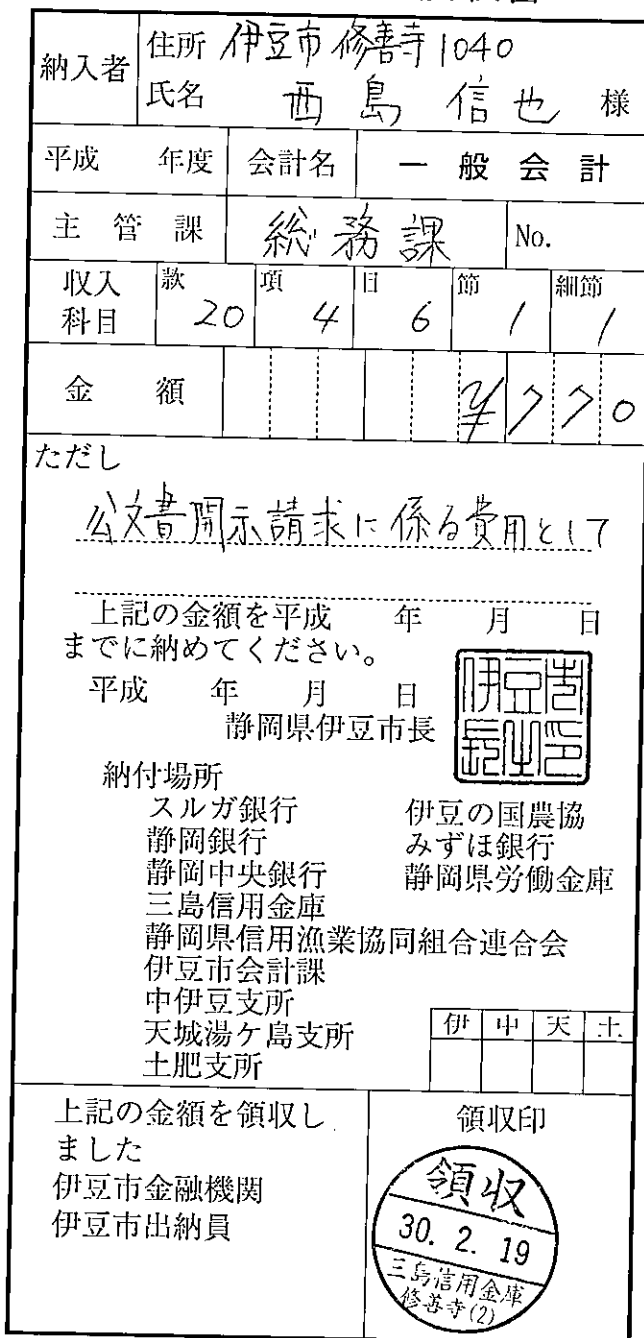 納入者 住所 伊豆市修善寺1040
氏名 西島信也 様
平成 年度 会計名 一般会計
主管課 総務課 No.
収入科目 款 20 項 4 目 6 節 1 細節 1
金額 ¥770
ただし
公文書開示請求に係る費用として
上記の金額を平成 年 月 日
までに納めてください。
平成 年 月 日
静岡県伊豆市長
伊豆市長之印
納付場所
スルガ銀行 伊豆の国農協
静岡銀行 みずほ銀行
静岡中央銀行 静岡県労働金庫
三島信用金庫
静岡県信用漁業協同組合連合会
伊豆市会計課
中伊豆支所
天城湯ケ島支所
土肥支所
伊 中 天 土
上記の金額を領収し
ました
伊豆市金融機関
伊豆市出納員
領収印
領収
30. 2. 19
三島信用金庫
修善寺(2)